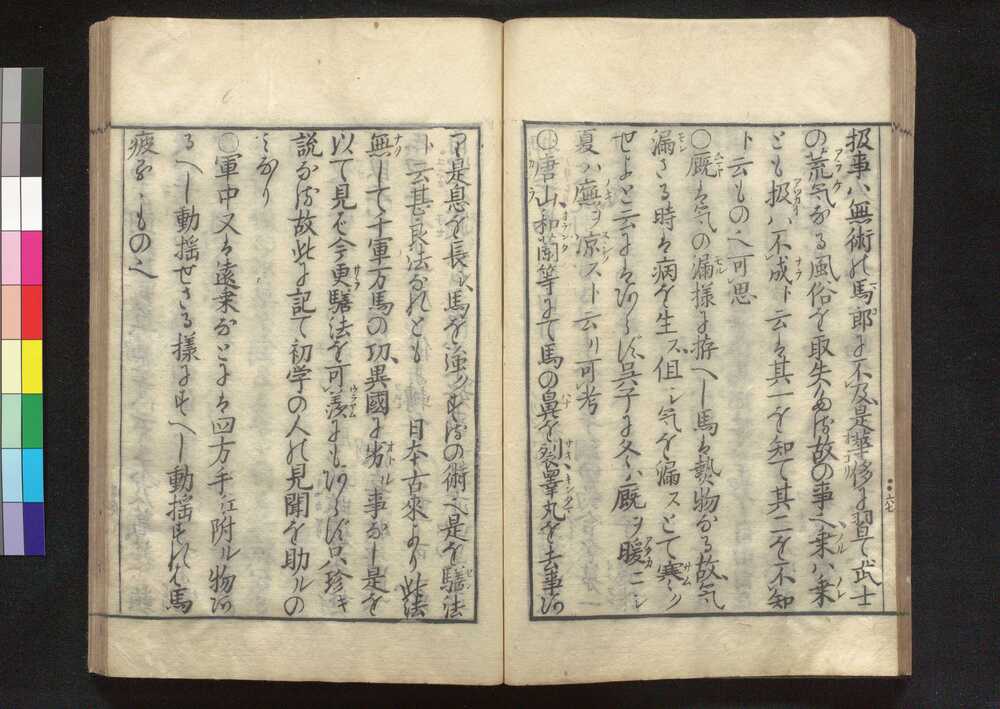 扱事ハ無術の馬郎に不及是華侈に習て武士
の荒気なる風俗を取失たる故の事也乗ハ乗
とも扱ハ不成ト云は其一を知て其二を不知
ト云もの也可思
○厩は気の漏様に拵へし馬は熱物なる故気
漏さる時は病を生ス但シ気を漏スとて寒ク
せよと云にはあらす呉子に冬ハ厩ヲ暖ニシ
夏ハ廡ヲ凉スト云リ可考
○唐山和蘭等にて馬の鼻を裂睾丸を去事あ
り是息を長ク馬を強クするの術也是を騸法
ト云甚良法なれとも日本古來より此法
無して千軍万馬の功異國に劣ル事なし是を
以て見れは今更騸法を可羨にもあらす只珍キ
説なる故此に記て初学の人の見聞を助ルの
みなり
○軍中又は遠乗なとには四方手に附ル物あ
るへし動揺せさる様にすへし動揺すれは馬
疲るゝもの也